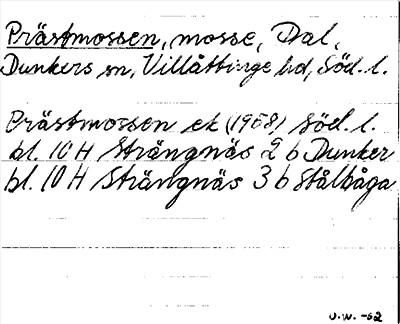 Prästmossen, mosse, Dal,
Dunkers sn, Villåttinge hd, Söd. l.
Prästmossen ek (1958) Söd. l.
bl. 10 H Strängnäs 2 b Dunker
bl. 10 H Strängnäs 3 b Stålboga
U.W. -62